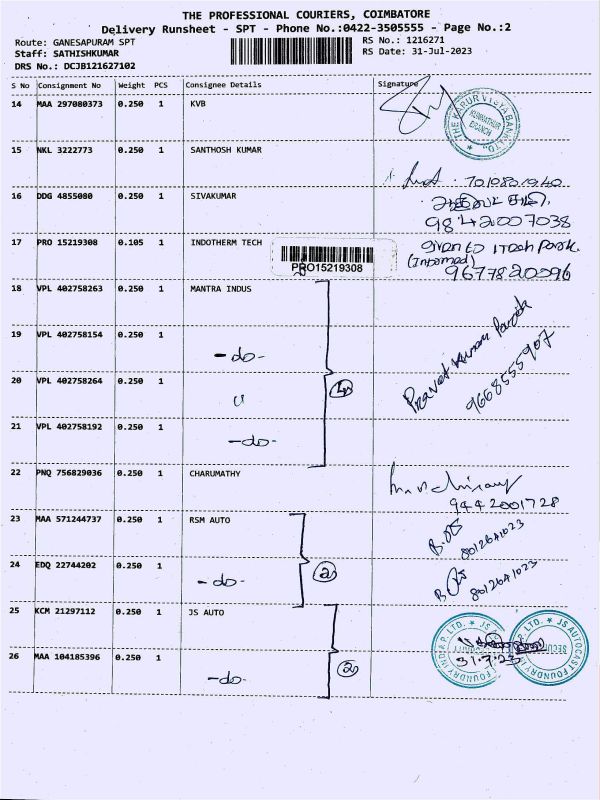 THE PROFESSIONAL COURIERS, COIMBATORE
Delivery Runsheet - SPT - Phone No.:0422-3505555 - Page No.:2
Route: GANESAPURAM SPT
RS No.: 1216271
Staff: SATHISHKUMAR
RS Date: 31-Jul-2023
DRS No.: DCJB121627102
S No Consignment No Weight PCS Consignee Details Signature
14 MAA 297080373 0.250 1 KVB
THE KARUR VYSYA BANK LTD
BRANCH
15 NKL 3222773 0.250 1 SANTHOSH KUMAR
7019801940
16 DDG 4855080 0.250 1 SIVAKUMAR
9842007038
17 PRO 15219308 0.105 1 INDOTHERM TECH
PRO15219308
Given to ITech Park.
(Informed)
9677820596
18 VPL 402758263 0.250 1 MANTRA INDUS
19 VPL 402758154 0.250 1
-do-
20 VPL 402758264 0.250 1
4
9668555907
21 VPL 402758192 0.250 1
-do-
22 PNQ 756829036 0.250 1 CHARUMATHY
9442001728
23 MAA 571244737 0.250 1 RSM AUTO
8012641023
24 EDQ 22744202 0.250 1
-do-
2
8012641023
25 KCM 21297112 0.250 1 JS AUTO
JS AUTOCAST FOUNDRY INDIA P. LTD.
SECURITY
31.7.23
26 MAA 104185396 0.250 1
-do-
2